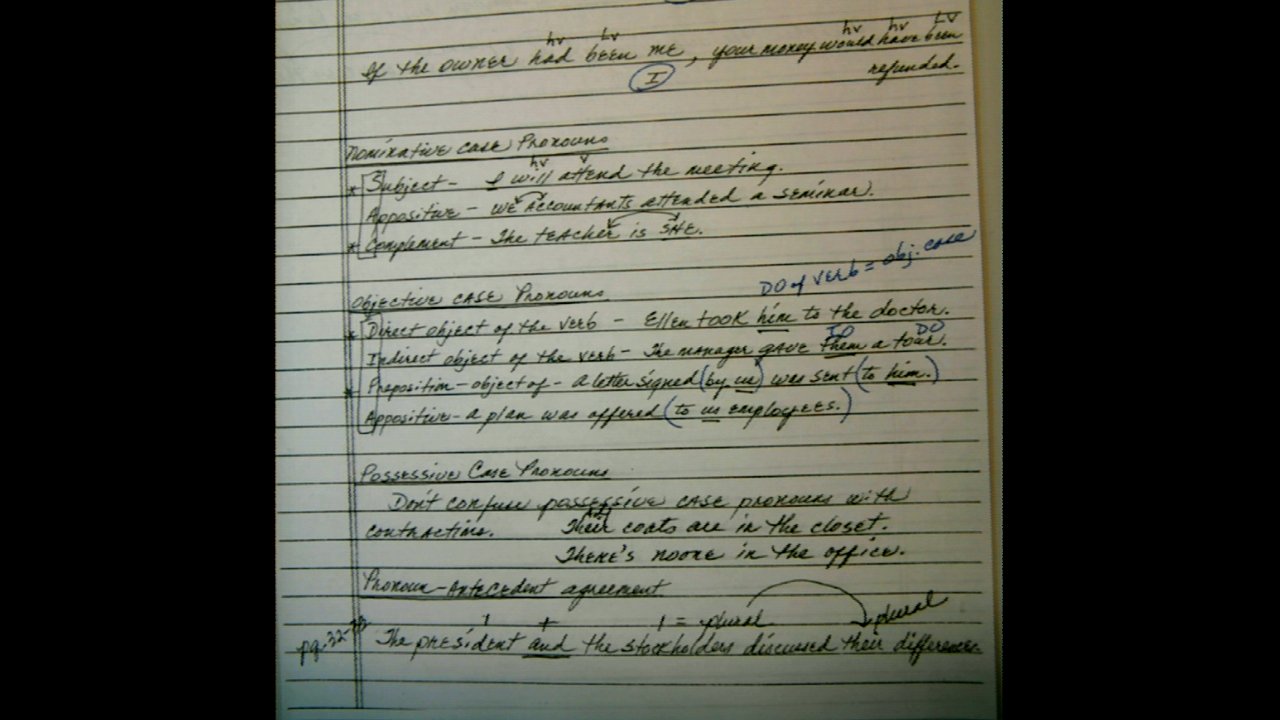 hv Lv hv hv Lv
If the owner had been me, your money would have been
I refunded.
Nominative Case Pronouns
hv v
* Subject - I will attend the meeting.
Appositive - we Accountants attended a seminar.
* Complement - The teacher is SHE.
DO of verb = obj. case
Objective Case Pronouns
* Direct object of the verb - Ellen took him to the doctor.
IO DO
Indirect object of the verb - The manager gave them a tour.
* Preposition - object of - a letter signed (by us) was sent (to him.)
Appositive - a plan was offered (to us employees.)
Possessive Case Pronouns
Don't confuse possessive case pronouns with
contractions. Their coats are in the closet.
There's noone in the office.
Pronoun - Antecedent agreement
1 + 1 = plural plural
pg. 32- The president and the stockholders discussed their differences.